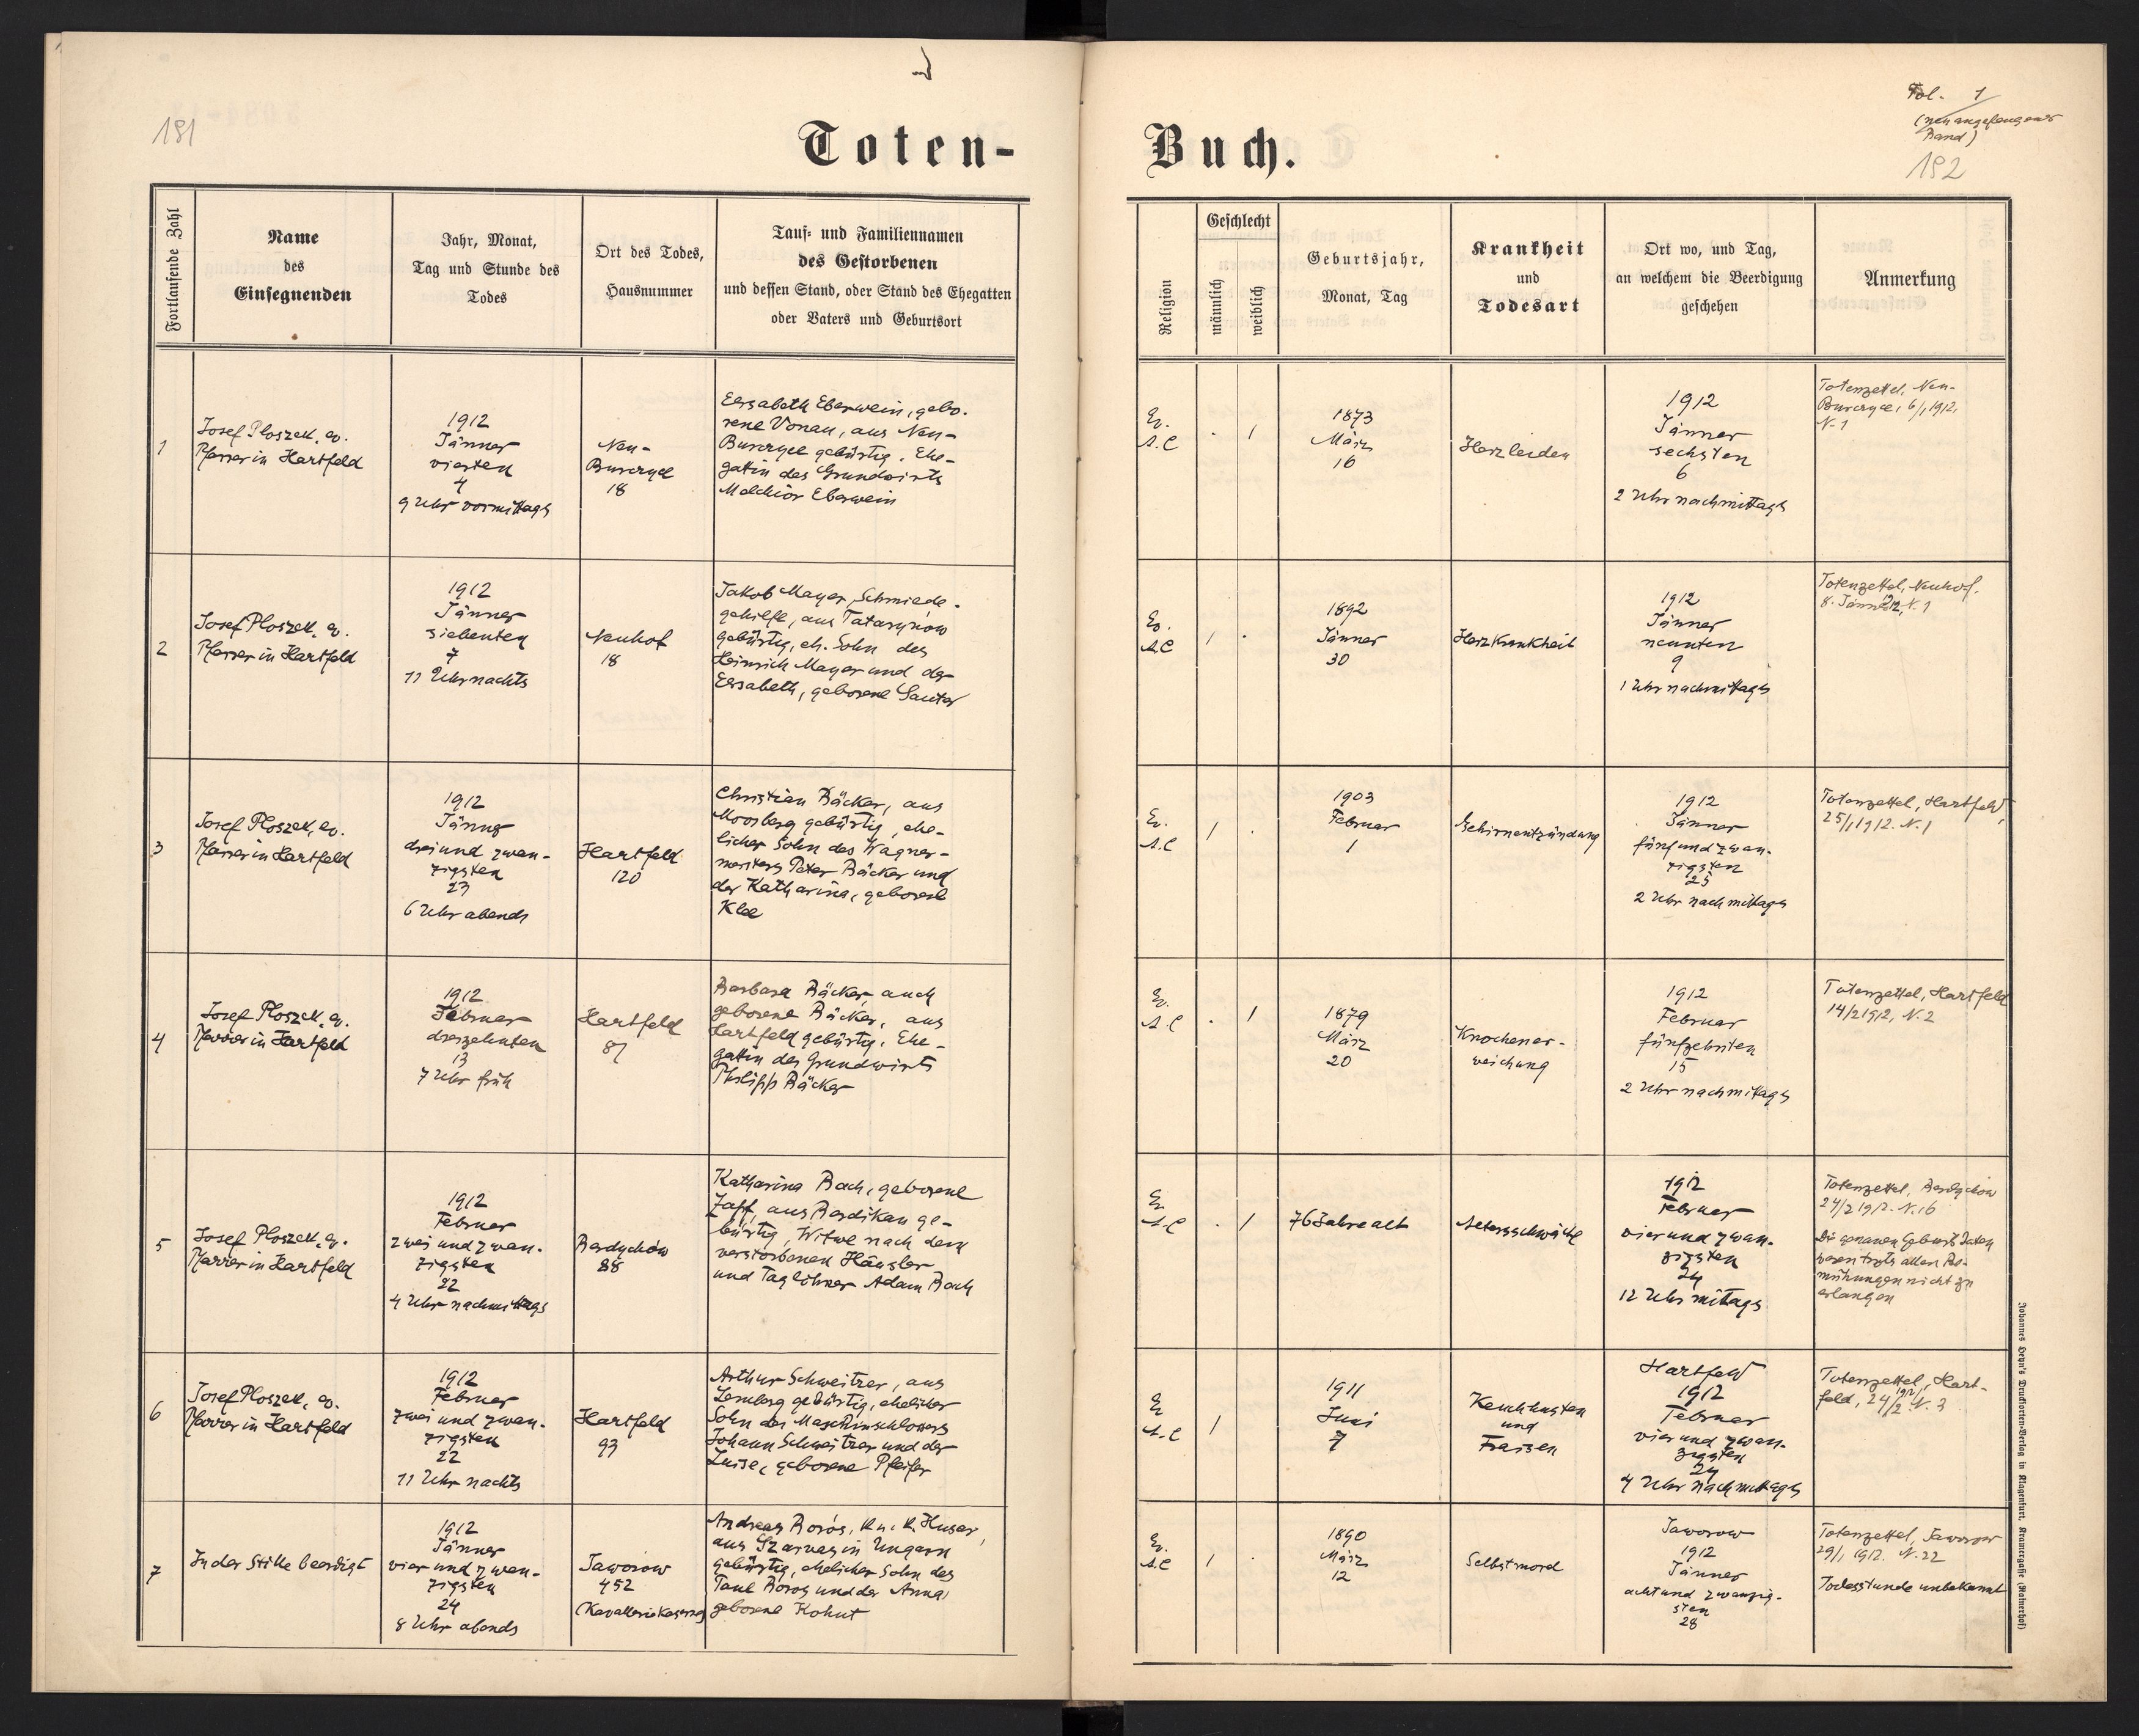 181
Toten-
Fortlaufende Zahl
Name
des
Einsegnenden
Jahr, Monat,
Tag und Stunde des
Todes
Ort des Todes,
Hausnummer
Tauf- und Familiennamen
des Gestorbenen
und dessen Stand, oder Stand des Ehegatten
oder Vaters und Geburtsort
1
Josef Ploszek, ev.
Pfarrer in Hartfeld
1912
Jänner
vierten
4
9 Uhr vormittags
Neu-
Bunczyce
18
Elisabeth Eberwein, gebo-
rene Vonau, aus Neu-
Bunczyce gebürtig. Ehe-
gattin des Grundwirts
Melchior Eberwein
2
Josef Ploszek, ev.
Pfarrer in Hartfeld
1912
Jänner
siebenten
7
11 Uhr nachts
Neuhof
18
Jakob Mayer, Schmiede-
gehilfe, aus Tatarynow
gebürtig, eh. Sohn des
Heinrich Mayer und der
Elisabeth, geborene Sauter
3
Josef Ploszek, ev.
Pfarrer in Hartfeld
1912
Jänner
drei und zwan-
zigsten
23
6 Uhr abends
Hartfeld
120
Christian Bäcker, aus
Moosberg gebürtig, ehe-
licher Sohn des Wagner-
meisters Peter Bäcker und
der Katharina, geborene
Klee
4
Josef Ploszek, ev.
Pfarrer in Hartfeld
1912
Februar
dreizehnten
13
7 Uhr früh
Hartfeld
87
Barbara Bäcker, auch
geborene Bäcker, aus
Hartfeld gebürtig. Ehe-
gattin des Grundwirts
Philipp Bäcker
5
Josef Ploszek, ev.
Pfarrer in Hartfeld
1912
Februar
zwei und zwan-
zigsten
22
4 Uhr nachmittags
Berdychów
88
Katharina Bach, geborene
Zaff, aus Berdikau ge-
bürtig, Witwe nach dem
verstorbenen Häusler
und Taglöhner Adam Bach
6
Josef Ploszek, ev.
Pfarrer in Hartfeld
1912
Februar
zwei und zwan-
zigsten
22
11 Uhr nachts
Hartfeld
93
Arthur Schweitzer, aus
Lemberg gebürtig, ehelicher
Sohn des Maschinschlossers
Johann Schweitzer und der
Luise, geborene Pfeifer
7
In der Stille beerdigt
1912
Jänner
vier und zwan-
zigsten
24
8 Uhr abends
Jaworow
452
(Kavalleriekaserne)
Andreas Borós, k. u. k. Husar,
aus Szarvas in Ungarn
gebürtig, ehelicher Sohn des
Paul Boros und der Anna,
geborene Kohut
Buch.
Fol. 1
(neu angefangener
Band)
182
Religion
Geschlecht
männlich
weiblich
Geburtsjahr,
Monat, Tag
Krankheit
und
Todesart
Ort wo, und Tag,
an welchem die Beerdigung
geschehen
Anmerkung
Ev.
A.C
1
1873
März
16
Herzleiden
1912
Jänner
sechsten
6
2 Uhr nachmittags
Totenzettel, Neu-
Bunczyce, 6/1 1912,
N. 1
Ev.
A.C
1
1892
Jänner
30
Herzkrankheit
1912
Jänner
neunten
9
1 Uhr nachmittags
Totenzettel, Neuhof.
8. Jänner 1912, N. 1
Ev.
A.C
1
1903
Februar
1
Gehirnentzündung
1912
Jänner
fünf und zwan-
zigsten
25
2 Uhr nachmittags
Totenzettel, Hartfeld,
25/1 1912. N. 1
Ev.
A.C
1
1879
März
20
Knochener-
weichung
1912
Februar
fünfzehnten
15
2 Uhr nachmittags
Totenzettel, Hartfeld
14/2 1912, N. 2
Ev.
A.C
1
76 Jahre alt
Altersschwäche
1912
Februar
vier und zwan-
zigsten
24
12 Uhr mittags
Totenzettel, Berdychów
24/2 1912. N. 16
Die genauen Geburtsdaten
waren trotz allen Be-
mühungen nicht zu
erlangen
Ev.
A.C
1
1911
Juni
7
Keuchhusten
und
Fraisen
Hartfeld
1912
Februar
vier und zwan-
zigsten
24
4 Uhr nachmittags
Totenzettel, Hart-
feld, 24/2 1912, N. 3
Ev.
A.C
1
1890
März
12
Selbstmord
Jaworow
1912
Jänner
acht und zwanzig-
sten
28
Totenzettel, Jaworow
29/1 1912. N. 22
Todesstunde unbekannt
Johannes Heyn's Drucksorten-Verlag in Klagenfurt, Kramergasse (Rainerhof)